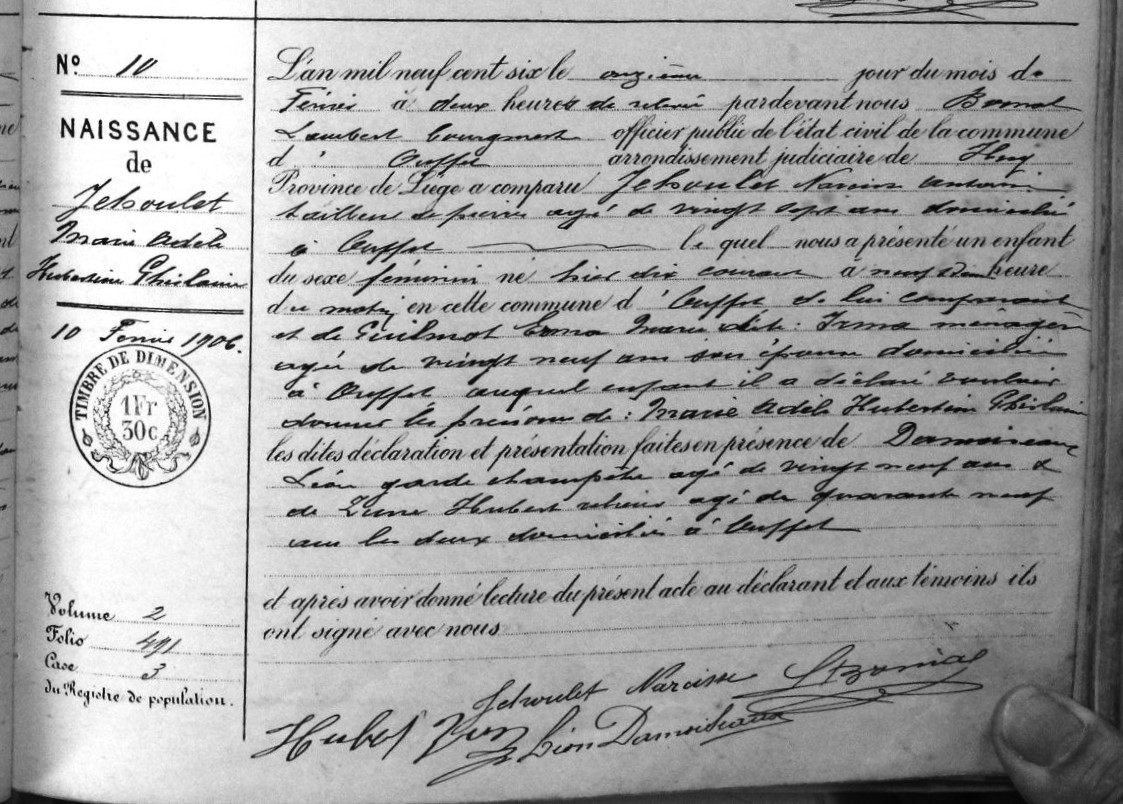 N° 10
NAISSANCE
de
Jehoulet
Marie Adèle
Hubertine Ghislaine
10 Février 1906.
TIMBRE DE DIMENSION
1Fr
30c
Volume 2
Folio 491
Case 3
du Registre de population.
L'an mil neuf cent six le onzième jour du mois de
Février à deux heures de relevée pardevant nous Bonnal
Lambert bourgmestre officier public de l'état civil de la commune
d' Ouffet arrondissement judiciaire de Huy
Province de Liège a comparu Jehoulet Narcisse Antoine
tailleur de pierres agé de vingt sept ans domicilié
à Ouffet le quel nous a présenté un enfant
du sexe féminin né hier dix courant à neuf heure
du matin en cette commune d'Ouffet de lui comparant
et de Guilmot Marie Irma ménagère
agée de vingt neuf ans son épouse domiciliée
à Ouffet auquel enfant il a déclaré vouloir
donner les prénoms de : Marie Adèle Hubertine Ghislaine
les dites déclaration et présentation faites en présence de Damoiseaux
Léon garde champêtre agé de vingt neuf ans &
de Hubert agé de quarante neuf
ans les deux domiciliés à Ouffet
et après avoir donné lecture du présent acte au déclarant et aux témoins ils
ont signé avec nous
Jehoulet Narcisse
Hubert
Léon Damoiseaux